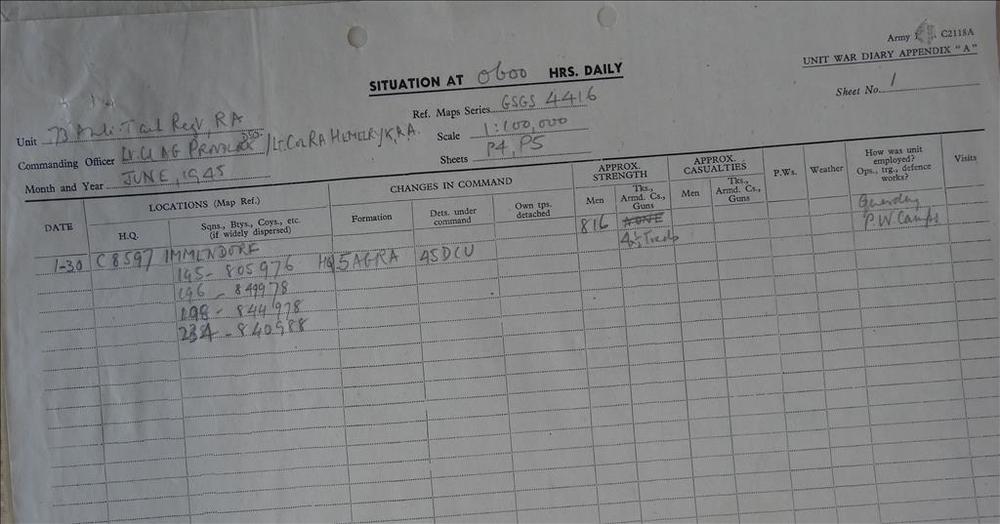 Army C2118A
UNIT WAR DIARY APPENDIX "A"
SITUATION AT 0600 HRS. DAILY
Sheet No. 1
Ref. Maps Series GSGS 4416
Unit 73 Anti-Tank Regt, RA
Scale 1:100,000
Commanding Officer Lt. Col AG DSO / Lt. Col RA HEMELRYK, RA.
Sheets P4, P5
Month and Year JUNE, 1945
DATE LOCATIONS (Map Ref.) CHANGES IN COMMAND APPROX. STRENGTH APPROX. CASUALTIES P.Ws. Weather How was unit employed? Ops., trg., defence works? Visits
H.Q. Sqns., Btys., Coys., etc. (if widely dispersed) Formation Dets. under command Own tps. detached Men Tks., Armd. Cs., Guns Men Tks., Armd. Cs., Guns
1-30 C 8597 IMMENDORF HQ 5 AGRA 45 DCU 816 Guarding
P.W Camps
195- 805976
196 - 849978
198 - 844978
234 - 840988